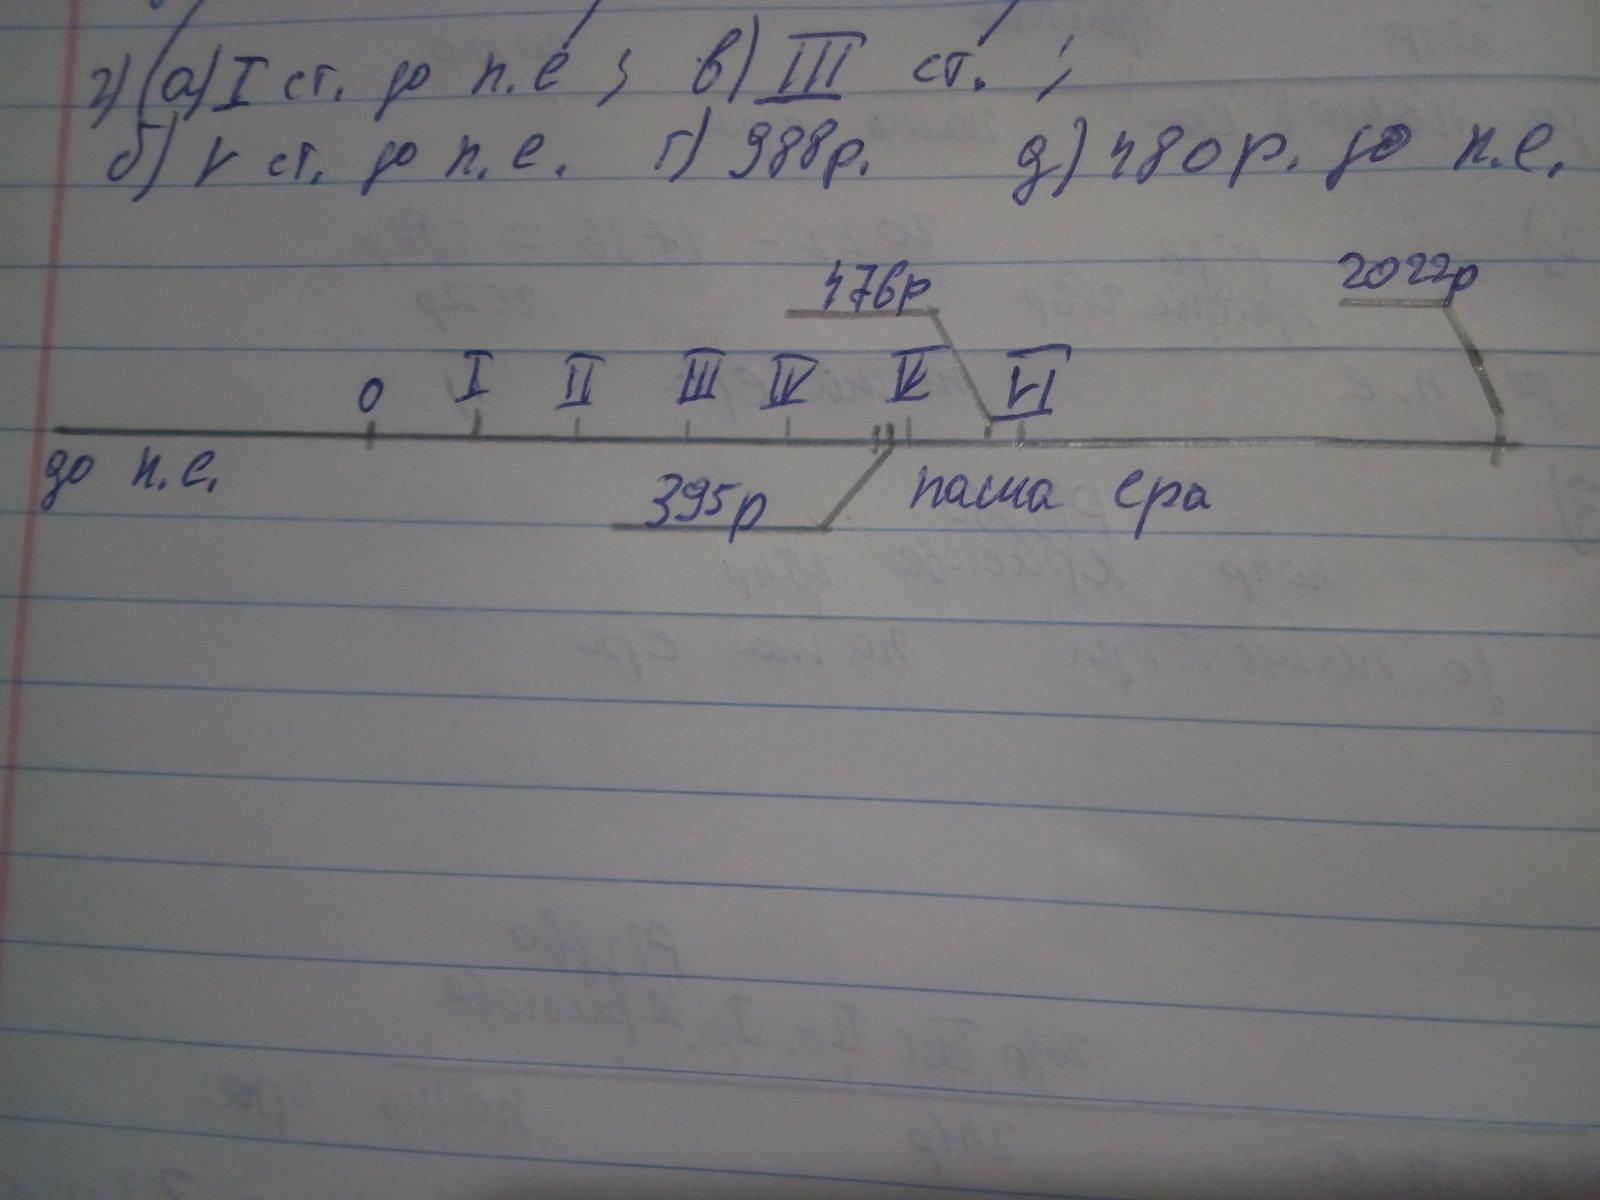 2) (а) I ст. до н.е ; в) III ст. ;
б) V ст. до н.е. г) 988р. д) 480р. до н.е.
476р 2022р
0 I II III IV V VI
до н.е. 395р наша ера